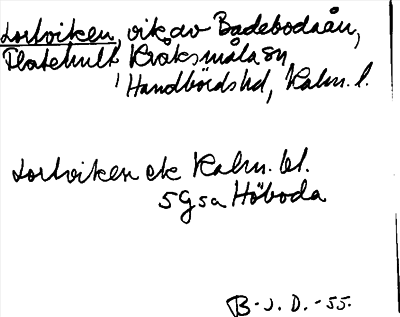 Lortviken, vik av Badebodaån,
Flatehult Kråksmåla sn,
Handbörds hd, Kalm. l.
Lortviken ek Kalm. bl.
5 G sa Höboda
B-J. D. -55.